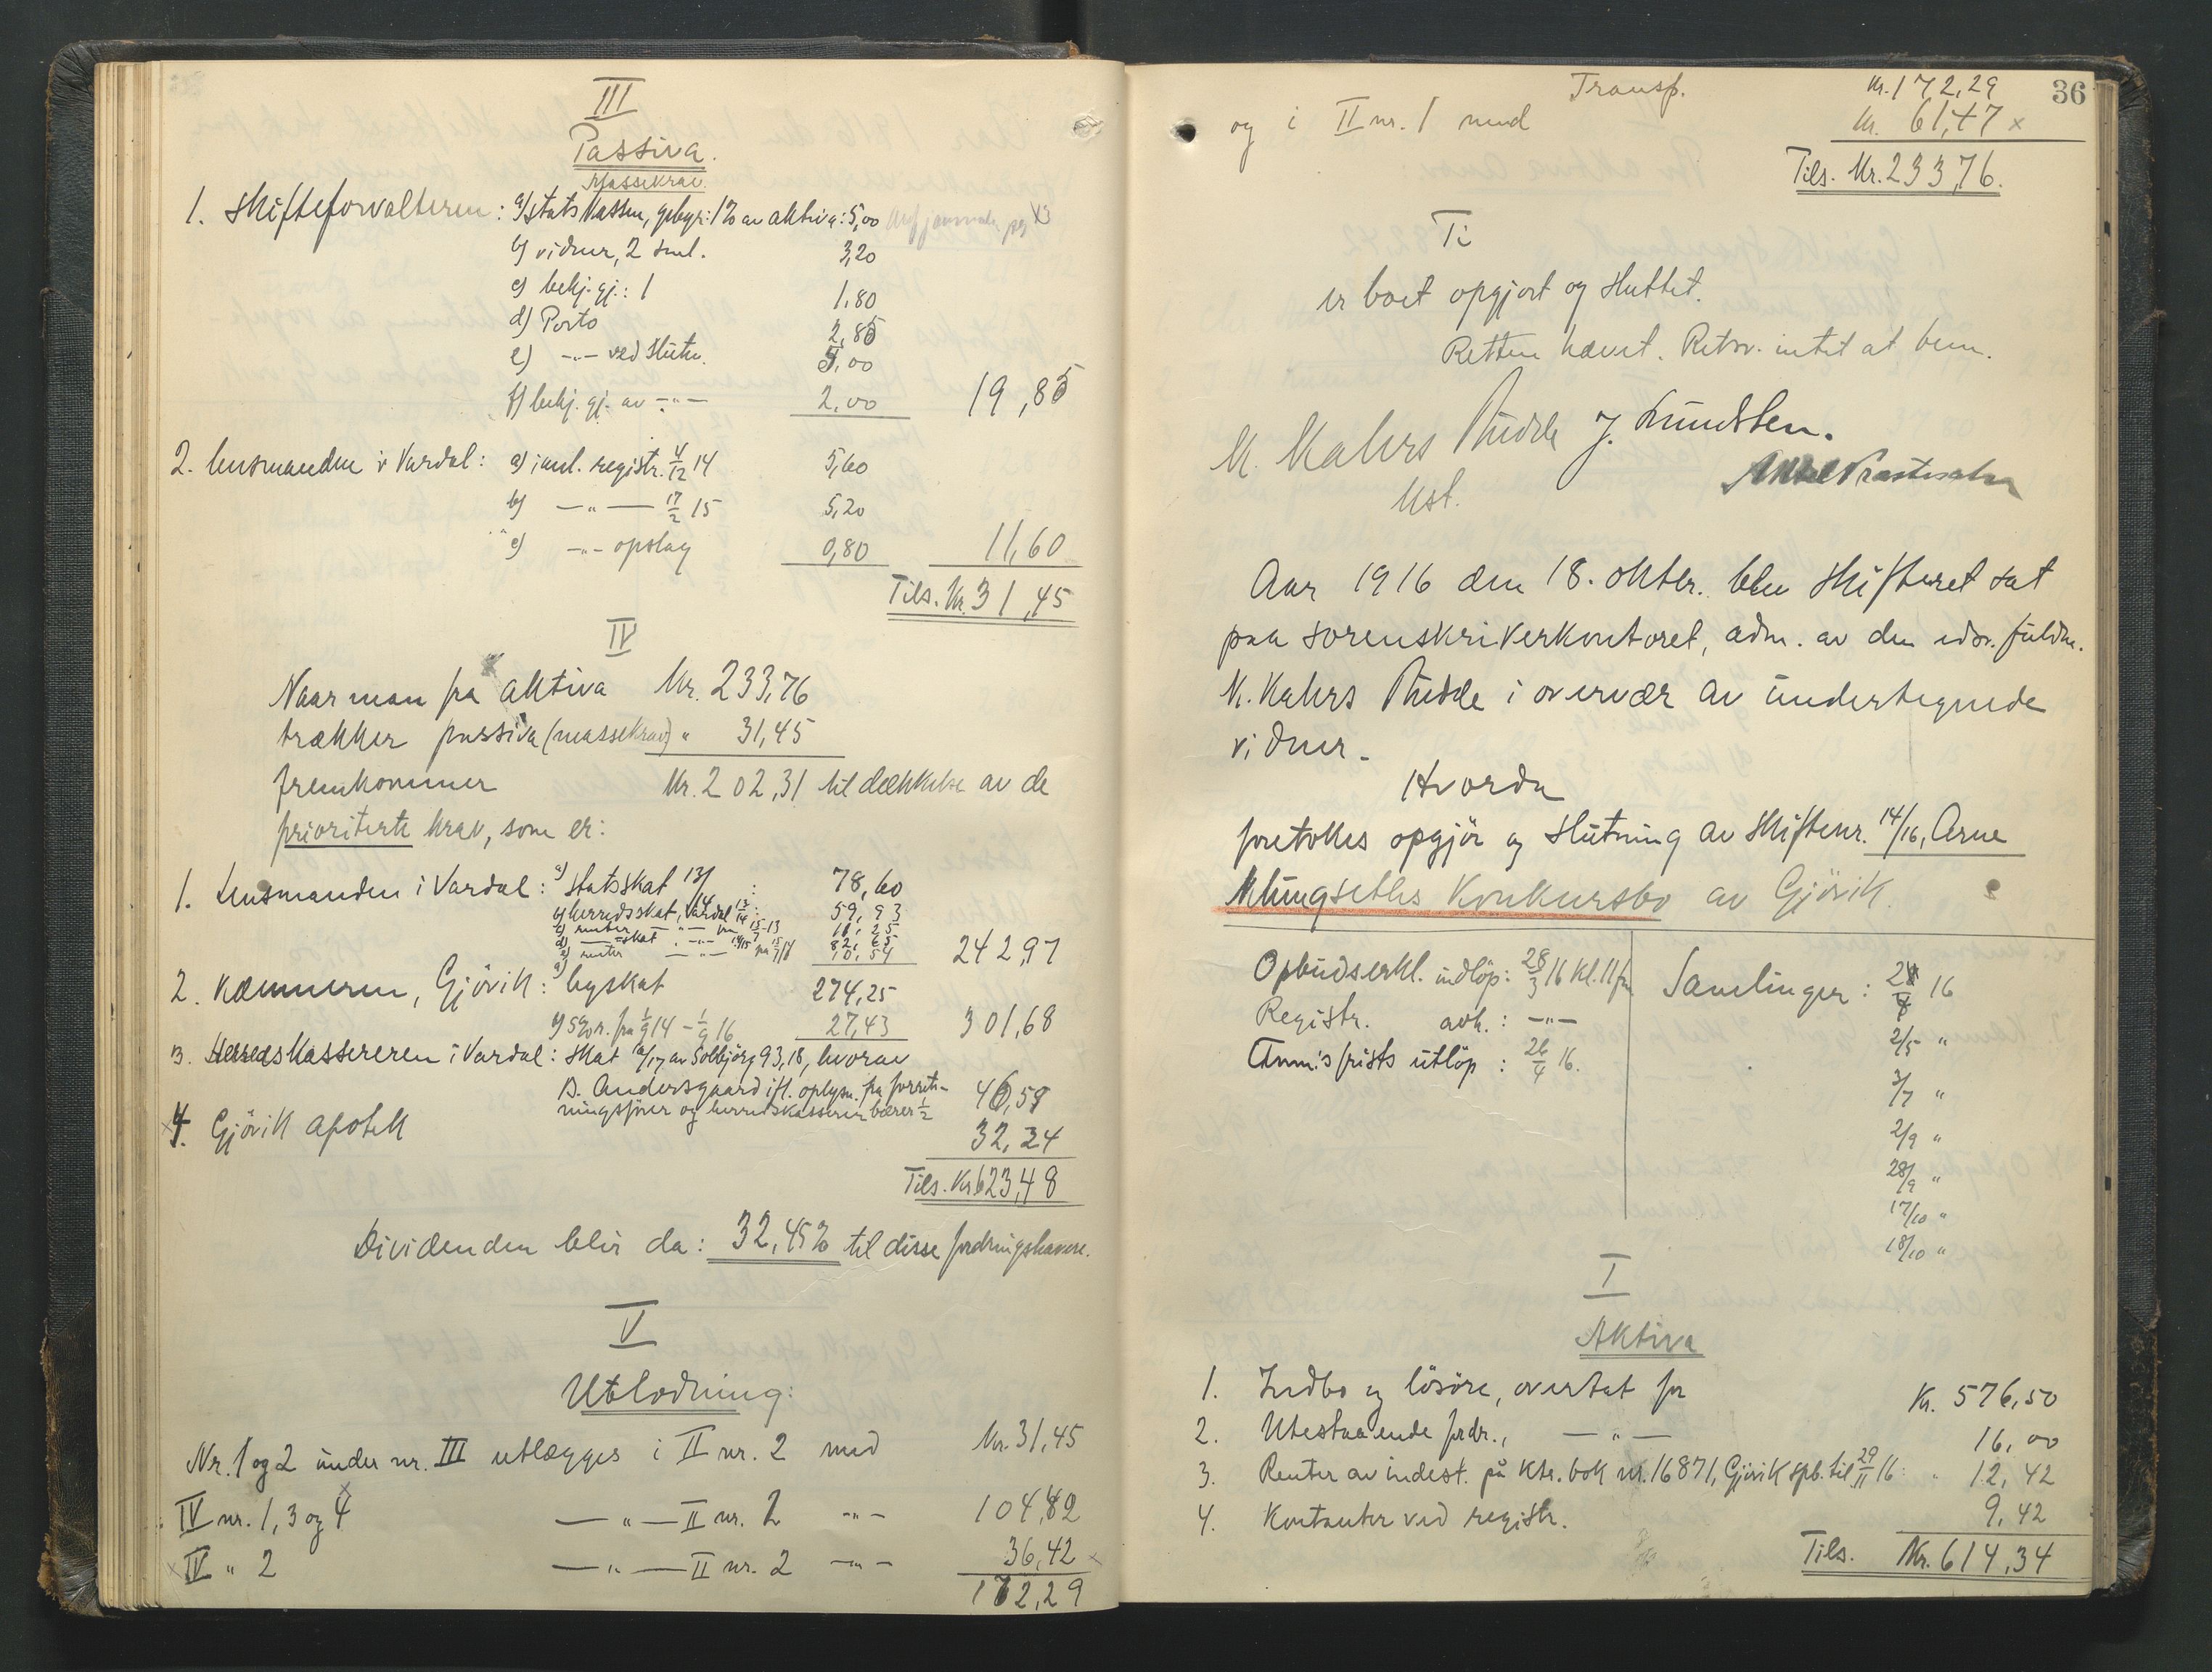 III
Passiva.
Massekrav.
1. Skifteforvalteren: a) Statskassen, gebyr: 1% av aktiva: 5,00
b) vidner, 2 saml. 3,20
c) bekj.gj.: 1 1,80
d) Porto 2,85
e) —"— ved slutn. 5,00
f) bekj.gj. av —"— 2,00 19,85
2. Lensmanden i Vardal: a) i anl. registr. 4/12 14 5,60
b) —"— 17/2 15 5,20
c) —"— opslag 0,80 11,60
Tils. Kr. 31,45
IV
Naar man fra aktiva Kr. 233,76
trækker passiva (massekrav) " 31,45
fremkommer Kr. 202,31 til dækkelse av de
prioriterte krav, som er:
1. Lensmanden i Vardal: a) Statsskat 13/14 : 78,60
b) herredsskat, Vardal 13/14 : 59,93
c) renter —"— fra 15/7-13 11,25
d) —"— skat —"— 14/15 82,65
e) renter —"— fra 15/7 14 10,54 242,97
2. Kæmneren, Gjövik: a) byskat 274,25
b) 5% r. fra 1/9 14 – 1/9 16 27,43 301,68
3. Herredskassereren i Vardal: skat av Solbjörg 93,18, hvorav
B. Andersgaard ifl. oplysn. fra forret-
ningsfører og herredskasseren bærer 1/2 46,59
4. Gjövik apotek 32,24
Tils. Kr 623,48
Dividenden blir da: 32,45% til disse fordringshavere.
V
Utlodning:
Nr. 1 og 2 under nr. III utlægges i II nr. 2 med Kr. 31,45
IV nr. 1, 3 og 4 —"— II nr. 2 —"— 104,42
IV " 2 —"— II nr. 2 —"— 36,42
172,29
36
Transp. Kr. 172,29
og i II nr. 1 med Kr. 61,47 x
Tils. Kr. 233,76.
Ti
er boet opgjort og sluttet.
Retten hævet. Retsv. intet at bem.
K. Kahrs J. Lundsten.
Kst.
Aar 1916 den 18. oktbr. blev skifteret sat
paa sorenskriverkontoret, adm. av den edsv. fuldm.
K. Kahrs i overvær av undertegnede
vidner.
Hvorda
foretokes opgjör og slutning av skiftenr. 14/16, Arne
Klungseths Konkursbo av Gjövik.
Opbudserkl. indlöp: 28/3 16 Kl. 11 fm
Registr. avh.: —"—
Anm.s frists utlöp : 26/4 16.
Samlinger: 28/4 16
2/5 "
3/7 "
2/9 "
28/9 "
17/10 "
18/10 "
I
Aktiva
1. Indbo og lösöre, overtat for Kr. 576,50
2. Utestaaende fordr., —"— 16,00
3. Renter av indest. på ktr. bok nr. 16871, Gjövik spb. til 29/11 16: " 12,42
4. Kontanter ved registr. 9,42
Tils. Kr. 614,34